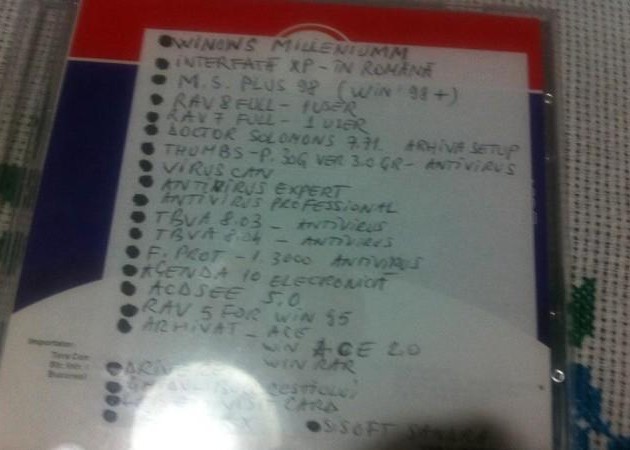 WINOWS MILLENIUMM
INTERFATĂ XP - ÎN ROMÂNĂ
M.S. PLUS 98 (WIN'98+)
RAV 8 FULL - 1 USER
RAV 7 FULL - 1 USER
DOCTOR SOLOMONS 7.71. ARHIVA SETUP
THUMBS-P. VER 3.0 GR- ANTIVIRUS
VIRUS CAN
ANTIVIRUS EXPERT
ANTIVIRUS PROFESSIONAL
TBVA 8.03 - ANTIVIRUS
TBVA 8.04 - ANTIVIRUS
F. PROT - 1.3000 ANTIVIRUS
AGENDA 10 ELECTRONICA
ACDSEE 5.0
RAV 5 FOR WIN 95
ARHIVAT - ACE
WIN ACE 2.0
WIN RAR
CARD
SISOFT SANDRA
Importator: